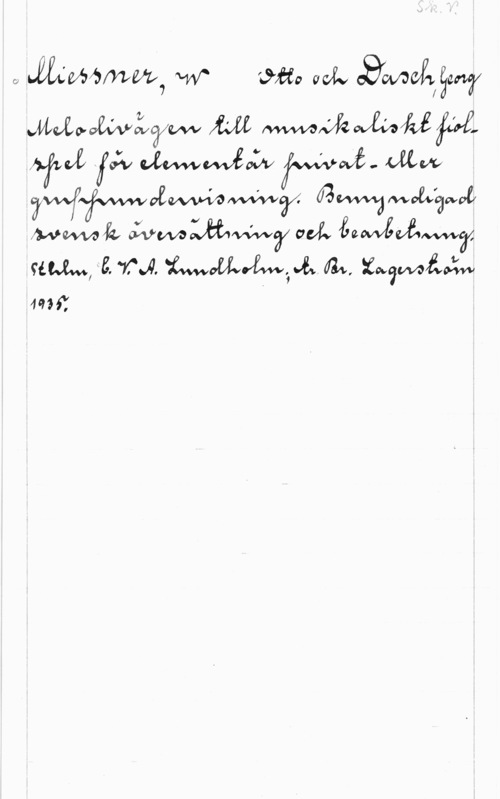 Sk. V.
Miessner, W Otto och Dasch, Georg
Melodivägen till musikaliskt fiol-
spel för elementär privat- eller
gruppundervisning. Bemyndigad
svensk översättning och bearbetning.
Sthlm, C. V. A. Lundholm; tr. Br. Lagerström
1935.